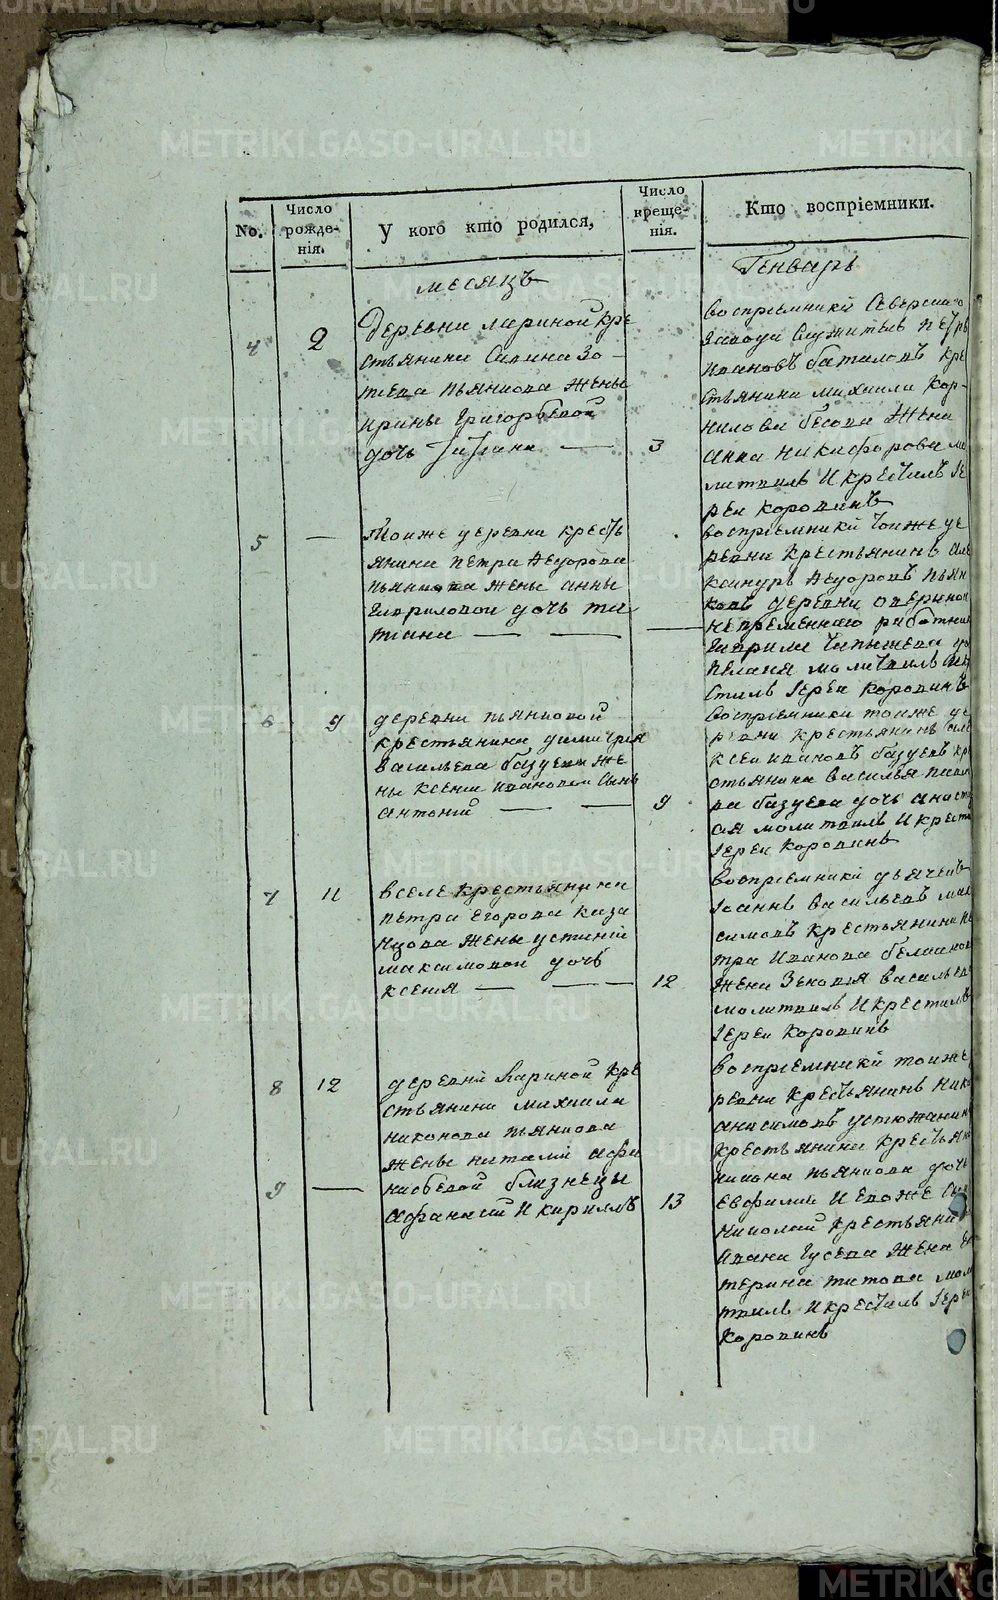 No.
Число рожде-нія.
У кого кто родился,
Число креще-нія.
Кто воспріемники.
месяцъ
Генварь
4
2
Деревни лариной кре
стьянина Савина Зо-
теева пьянкова жены
ирины григорьевой
дочь татиана —
3
воспріемники Северскаго
завода Служитель петръ
ивановъ баталовъ кре
стьянина михаила кор-
нилова бѣсова жена
анна никифорова мо
литвилъ и крестилъ Іе
реи коровинъ
5
—
Тоиже деревни кресть
янина петра Ѳедорова
пьянкова жены анны
гавриловои дочь та
тіана — —
—
воспріемники тоиже де
ревни крестьянинъ але
ксандръ Ѳедоровъ пьян
ковъ деревни
непременнаго работника
гаврила чапышева до
пелагия молитвилъ
стилъ Іереи коровинъ
6
9
деревни пьянковой
крестьянина димитрия
васильева базуева же
ны ксении ивановои сынъ
антоній — —
9
воспріемники тоиже де
ревни крестьянинъ але
ксеи ивановъ базуевъ кре
стьянина василья павло
ва базуева дочь анаста
ая молитвилъ и крести
Іереи коровинъ
7
11
вселе крестьянина
петра егорова каза
нцова жены устиніи
максимовои дочь
ксения — —
12
воспріемники дьячекъ
Іоаннъ васильевъ мак
симовъ крестьянина пе
тра иванова
жена Зеновія васильева
молитвилъ и крестилъ
Іереи коровинъ
8
12
деревни Лариной кре
стьянина михаила
никонова пьянкова
жены наталіи афа
9
—
насьевой близнецы
афанасий и кириллъ
13
воспріемники тоиже
ревни крестьянинъ нико
анисимовъ устюжанин
крестьянина крестьян
никона пьянкова дочь
Евфимия и егоже сын
николай крестьянина
ивана гусева жена ек
терина титова мол
твилъ и крестилъ Іереи
коровинъ
METRIKI.GASO-URAL.RU